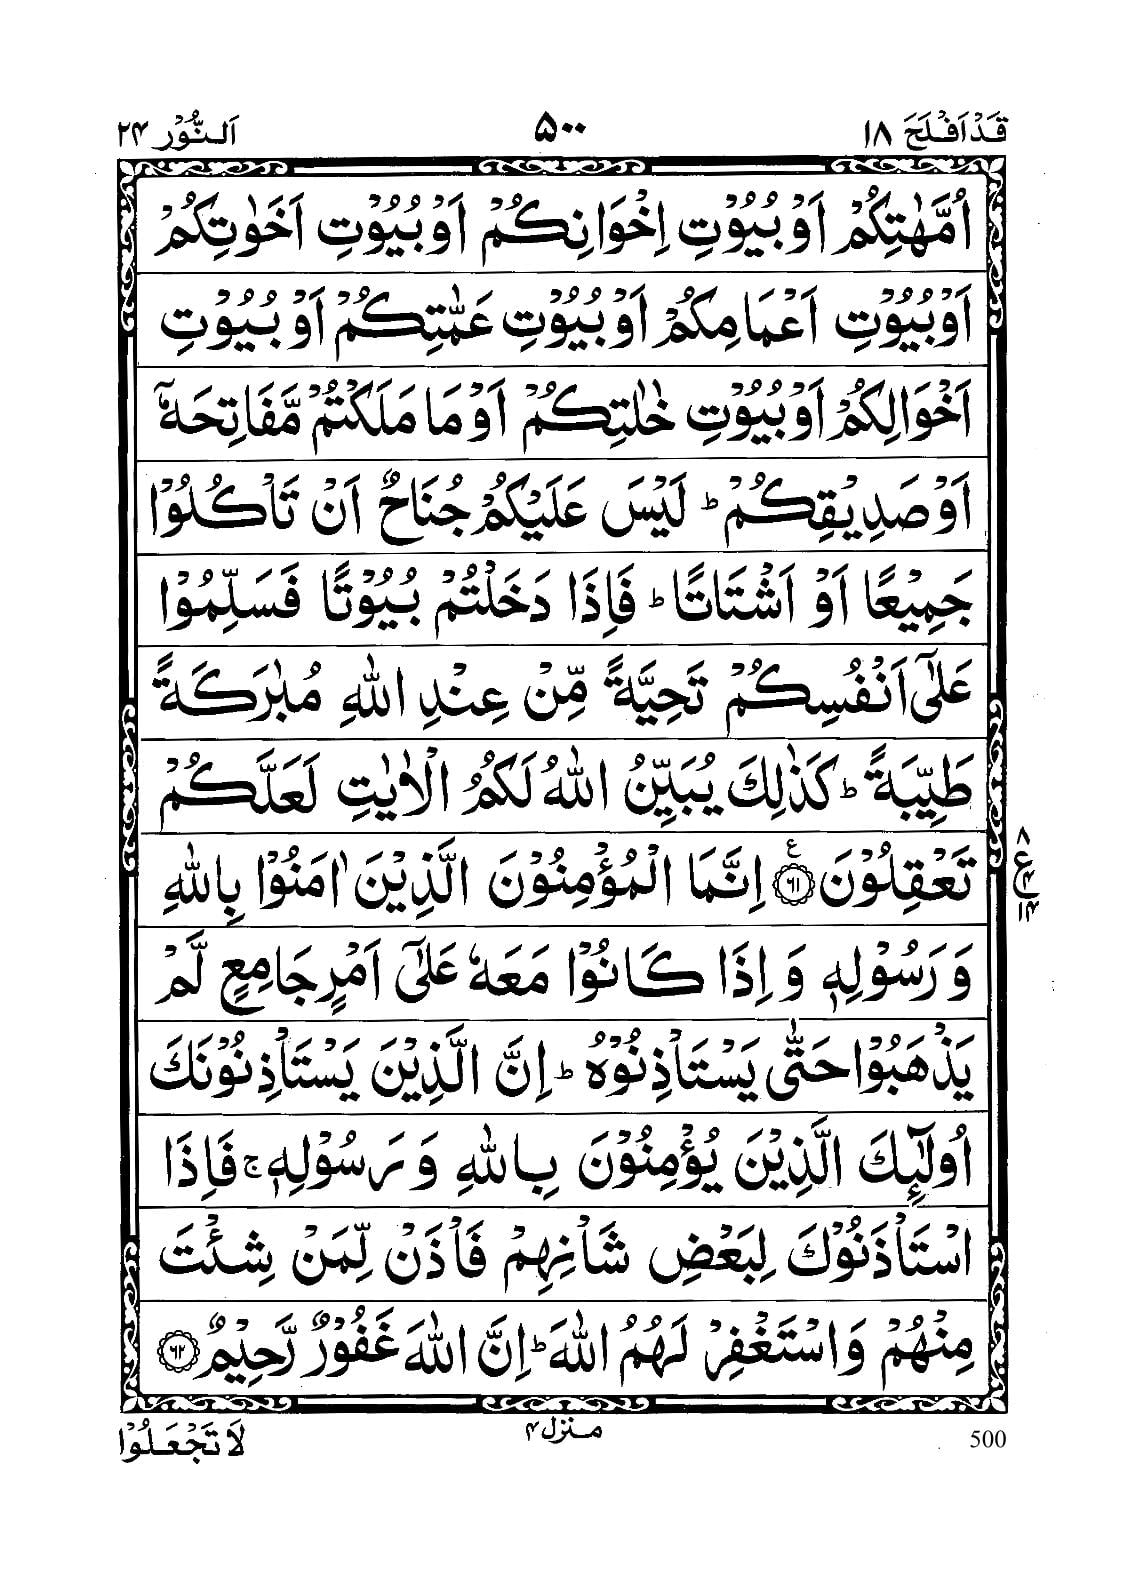 قَدْ اَفْلَحَ ١٨
٥٠٠
اَلنُّوْر ٢٤
اُمَّهٰتِكُمْ اَوْ بُيُوْتِ اِخْوَانِكُمْ اَوْ بُيُوْتِ اَخَوٰتِكُمْ
اَوْ بُيُوْتِ اَعْمَامِكُمْ اَوْ بُيُوْتِ عَمّٰتِكُمْ اَوْ بُيُوْتِ
اَخْوَالِكُمْ اَوْ بُيُوْتِ خٰلٰتِكُمْ اَوْ مَا مَلَكْتُمْ مَّفَاتِحَهٗۤ
اَوْ صَدِيْقِكُمْ ؕ لَيْسَ عَلَيْكُمْ جُنَاحٌ اَنْ تَاْكُلُوْا
جَمِيْعًا اَوْ اَشْتَاتًا ؕ فَاِذَا دَخَلْتُمْ بُيُوْتًا فَسَلِّمُوْا
عَلٰۤى اَنْفُسِكُمْ تَحِيَّةً مِّنْ عِنْدِ اللّٰهِ مُبٰرَكَةً
طَيِّبَةً ؕ كَذٰلِكَ يُبَيِّنُ اللّٰهُ لَكُمُ الْاٰيٰتِ لَعَلَّكُمْ
تَعْقِلُوْنَ ﴿٦١﴾ ع اِنَّمَا الْمُؤْمِنُوْنَ الَّذِيْنَ اٰمَنُوْا بِاللّٰهِ
٨
ع
٤
١٤
وَ رَسُوْلِهٖ وَ اِذَا كَانُوْا مَعَهٗ عَلٰۤى اَمْرٍ جَامِعٍ لَّمْ
يَذْهَبُوْا حَتّٰى يَسْتَاْذِنُوْهُ ؕ اِنَّ الَّذِيْنَ يَسْتَاْذِنُوْنَكَ
اُولٰٓئِكَ الَّذِيْنَ يُؤْمِنُوْنَ بِاللّٰهِ وَ رَسُوْلِهٖ ۚ فَاِذَا
اسْتَاْذَنُوْكَ لِبَعْضِ شَاْنِهِمْ فَاْذَنْ لِّمَنْ شِئْتَ
مِنْهُمْ وَ اسْتَغْفِرْ لَهُمُ اللّٰهَ ؕ اِنَّ اللّٰهَ غَفُوْرٌ رَّحِيْمٌ ﴿٦٢﴾
500
منزل ٤
لَا تَجْعَلُوْا